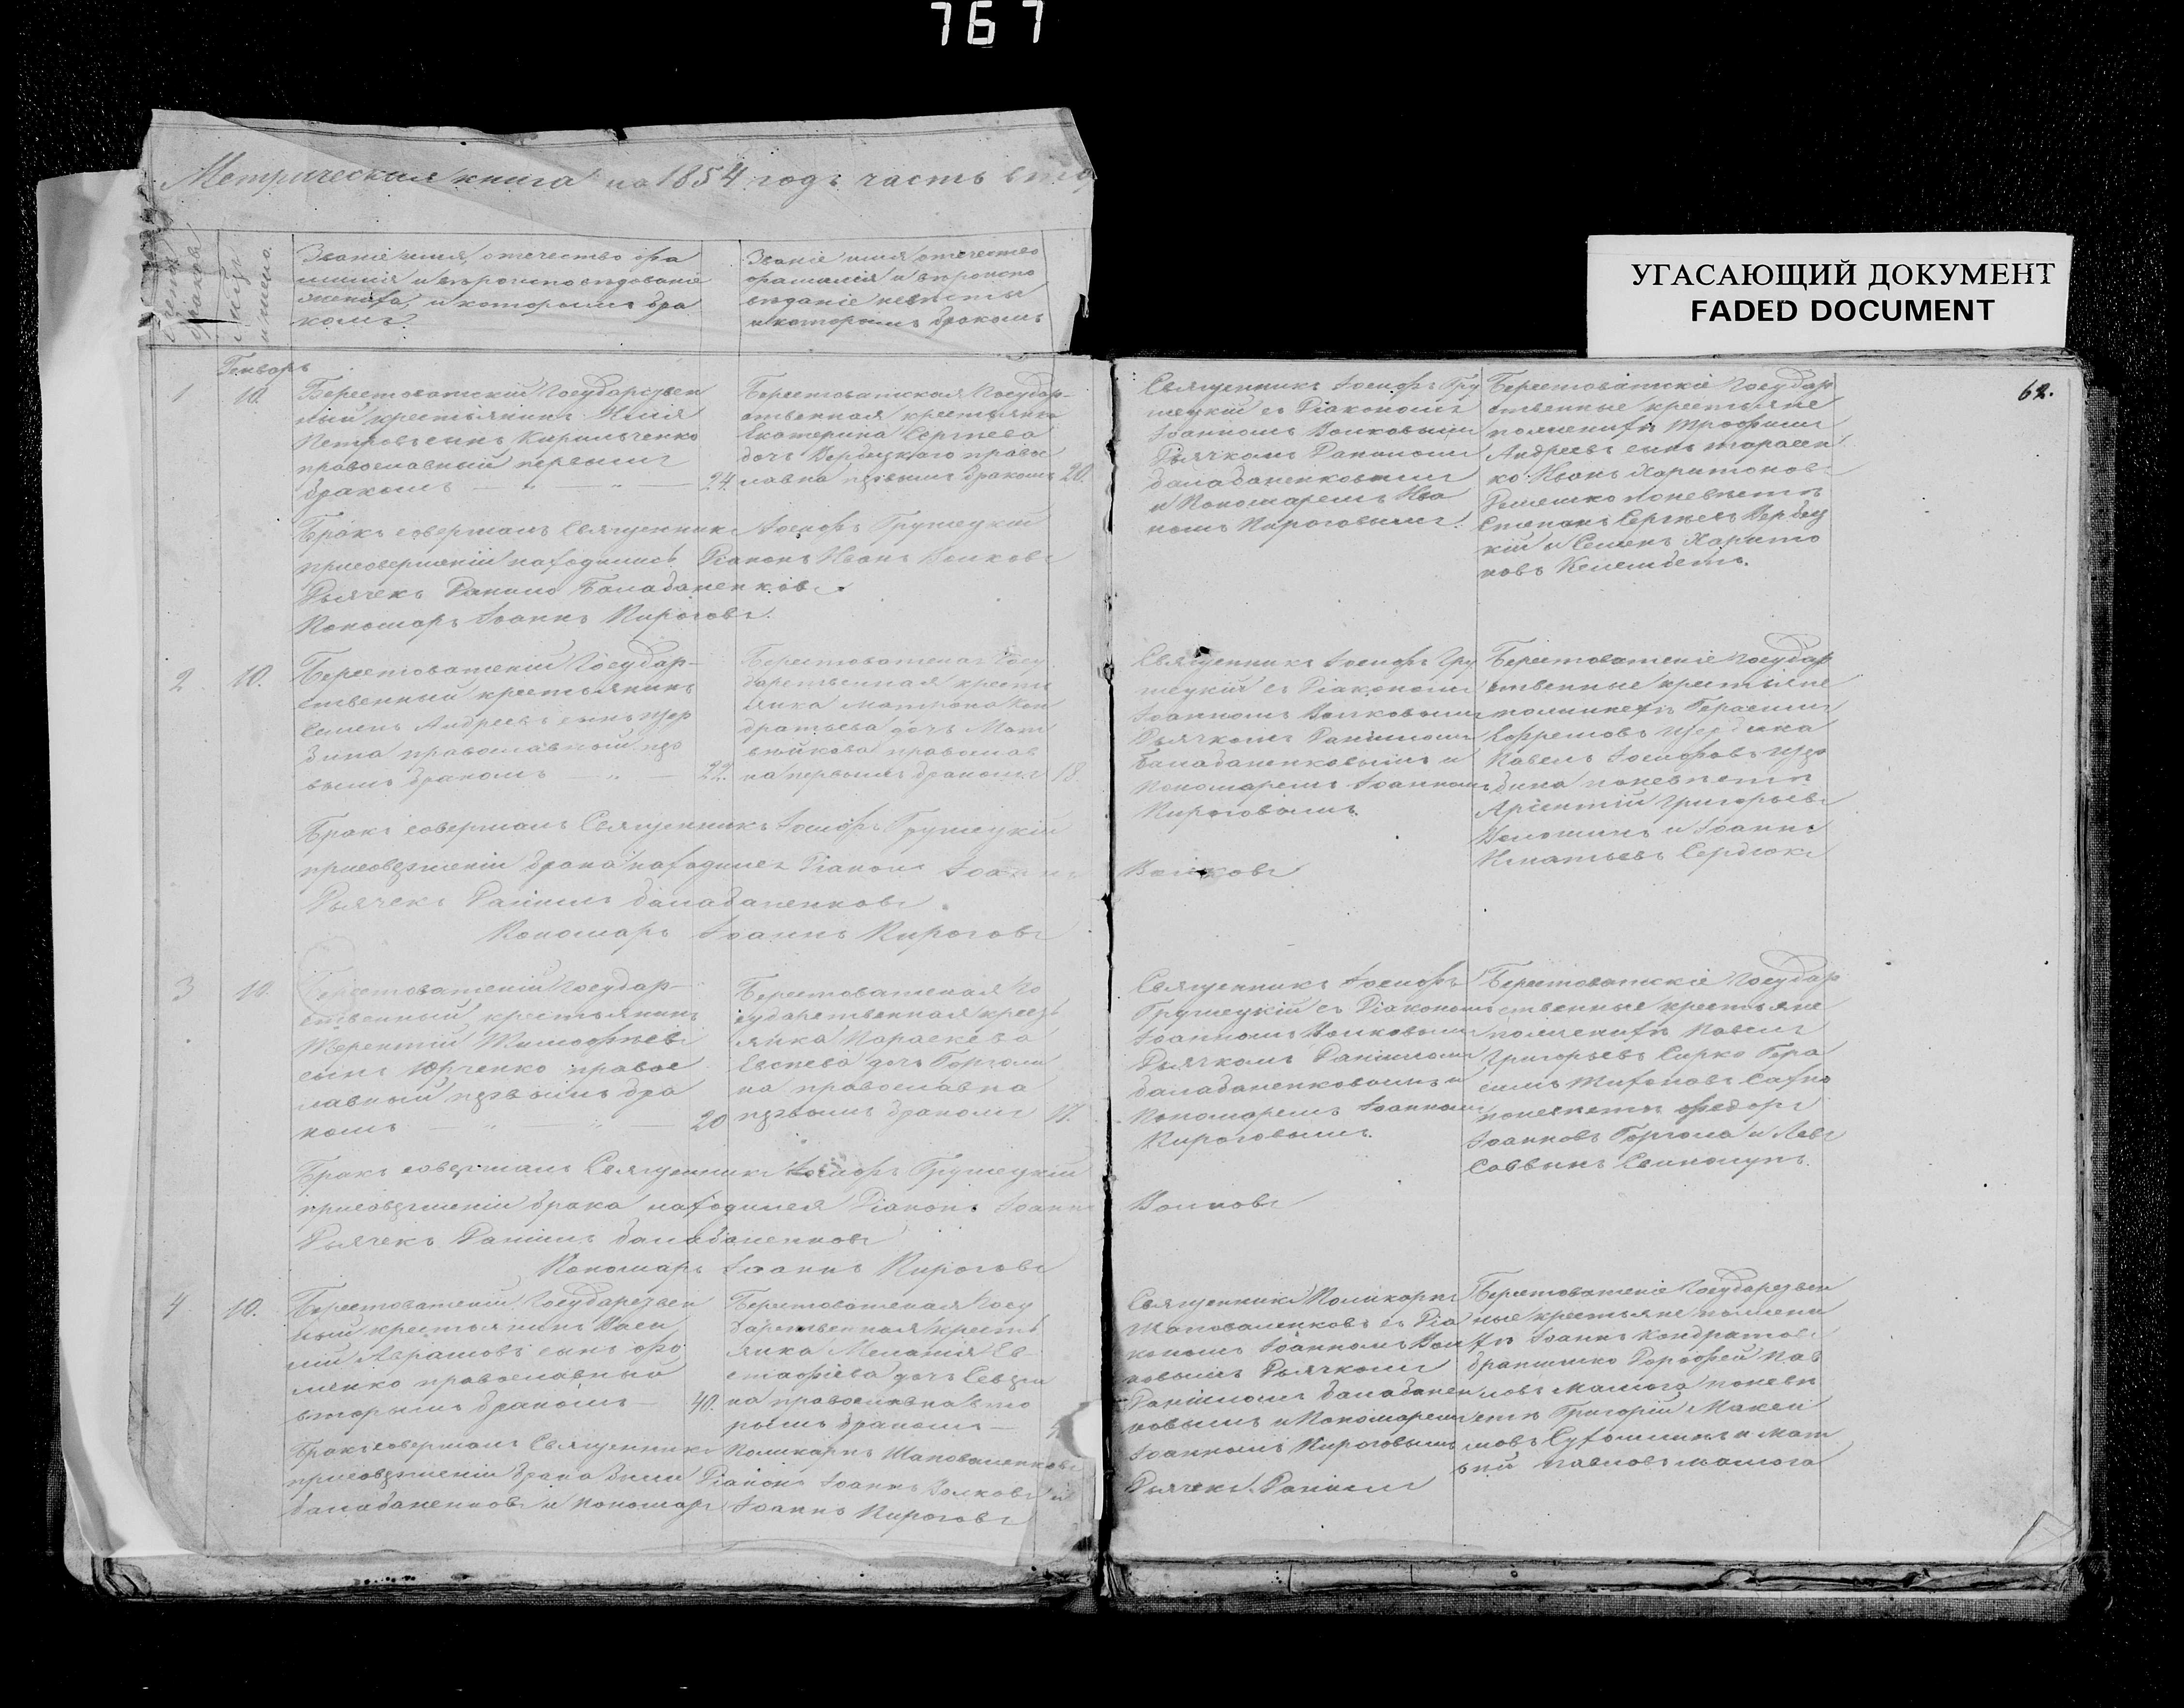 767
УГАСАЮЩИЙ ДОКУМЕНТ
FADED DOCUMENT
62.
Метрическая книга на 1854 годъ часть
Званіе имя, отечество фа
милія и вѣроисповѣдованіе
жениха, и которымъ бра
комъ.
Званіе имя отечество
фамилія и вѣроиспо
вѣданіе невѣсты
и которымъ бракомъ
Генварь
1
10.
Берестоватскій Государствен
ный крестьянинъ Илія
Петровъ сынъ Кирильченко
православный первымъ
бракомъ — „ — „ — 24.
Берестоватская Государ-
ственная крестьянка
Екатерина Сергѣева
дочь Вербицкого правос
лавна первымъ бракомъ 20.
Священникъ Іосифъ Гру
шецкій съ Діакономъ
Іоанномъ Волковымъ
Дьячкомъ Даниломъ
балабаненковымъ
и Пономаремъ Ива
номъ Пироговымъ.
Берестоватскіе Государ
ственные крестьяне
по женихѣ Трофимъ
Андреевъ сынъ тарасен
ко Иванъ Харитоновъ
по невѣстѣ
Степанъ Сергѣевъ Вербиц
кій и Семенъ Харито
новъ
Бракъ совершалъ Священникъ Іосифъ Грушецкій
присовершеніи находились Діаконъ Иванъ Волковъ
Дьячекъ Данило Балабаненковъ.
Пономарь Іоаннъ Пироговъ.
2
10.
Берестоватскій Государ-
ственный крестьянинъ
Семенъ Андреевъ сынъ Щер
бина православный пер
вымъ бракомъ — „ — 22.
Берестоватская Госу
дарственная кресть
янка Матрона Кон
дратьева дочь Мат
вѣйкова православ
на первымъ бракомъ 18.
Священникъ Іосифъ Гру
шецкій съ Діакономъ
Іоанномъ Волковымъ
Дьячкомъ Даниломъ
Балабаненковымъ и
Пономаремъ Іоанномъ
Пироговымъ.
Берестоватскіе Государ
ственные крестьяне
по женихѣ Герасимъ
Ефремовъ Щербина
Павелъ Іосифовъ Щер
бина по невѣстѣ
Арсентій Григорьевъ
и Іоаннъ
Игнатьевъ Сердюкъ
Бракъ совершалъ Священникъ Іосифъ Грушецкій
присовершеніи брака находился Діаконъ Іоаннъ
Волковъ
Дьячекъ Даніилъ балабаненковъ.
Пономарь Іоаннъ Пироговъ
3
10.
Берестоватскій Государ-
ственный крестьянинъ
Терентій Тимофѣевъ
сынъ Юрченко правос
лавный первымъ бра
комъ — „ — „ — 20
Берестоватская Го
сударственная кресть
янка Параскева
дочь Горголи
на православна
первымъ бракомъ 17.
Священникъ Іосифъ
Грушецкій съ Діакономъ
Іоанномъ Волковымъ
Дьячкомъ Даніиломъ
балабаненковымъ и
Пономаремъ Іоанномъ
Пироговымъ.
Берестоватскіе Государ
ственные крестьяне
по женихѣ Павелъ
Григорьевъ Сирко Гера
симъ Тихоновъ
по невѣстѣ Федоръ
Іоанновъ Горгола и Левъ
Саввинъ
Бракъ совершалъ Священникъ Іосифъ Грушецкій
присовершеніи брака находился Діаконъ Іоаннъ
Волковъ
Дьячекъ Даніилъ балабаненковъ
Пономарь Іоаннъ Пироговъ
4
10.
Берестоватскій Государствен
ный крестьянинъ Васи
лій Аврамовъ сынъ Фо
менко православный
вторымъ бракомъ — 40.
Берестоватская Госу
дарственная кресть
янка Меланія Ев
стафіева дочь
на православна вто
рымъ бракомъ —
Священникъ Поликарпъ
Шаповаленковъ съ Діа
кономъ Іоанномъ Вол
ковымъ Дьячкомъ
Даніиломъ балабанен
ковымъ и Пономаремъ
Іоанномъ Пироговымъ
Берестоватскіе Государствен
ные крестьяне по жени
хѣ Іоаннъ Кондратовъ
Дорофей Пав
ловъ Малюга по невѣ
стѣ Григорій Макси
мовъ и Мат
вѣй Павловъ малюга
Бракъ совершалъ Священникъ Поликарпъ Шаповаленковъ
присовершеніи брака были Діаконъ Іоаннъ Волковъ и
Дьячекъ Даніилъ
балабаненковъ и пономарь Іоаннъ Пироговъ